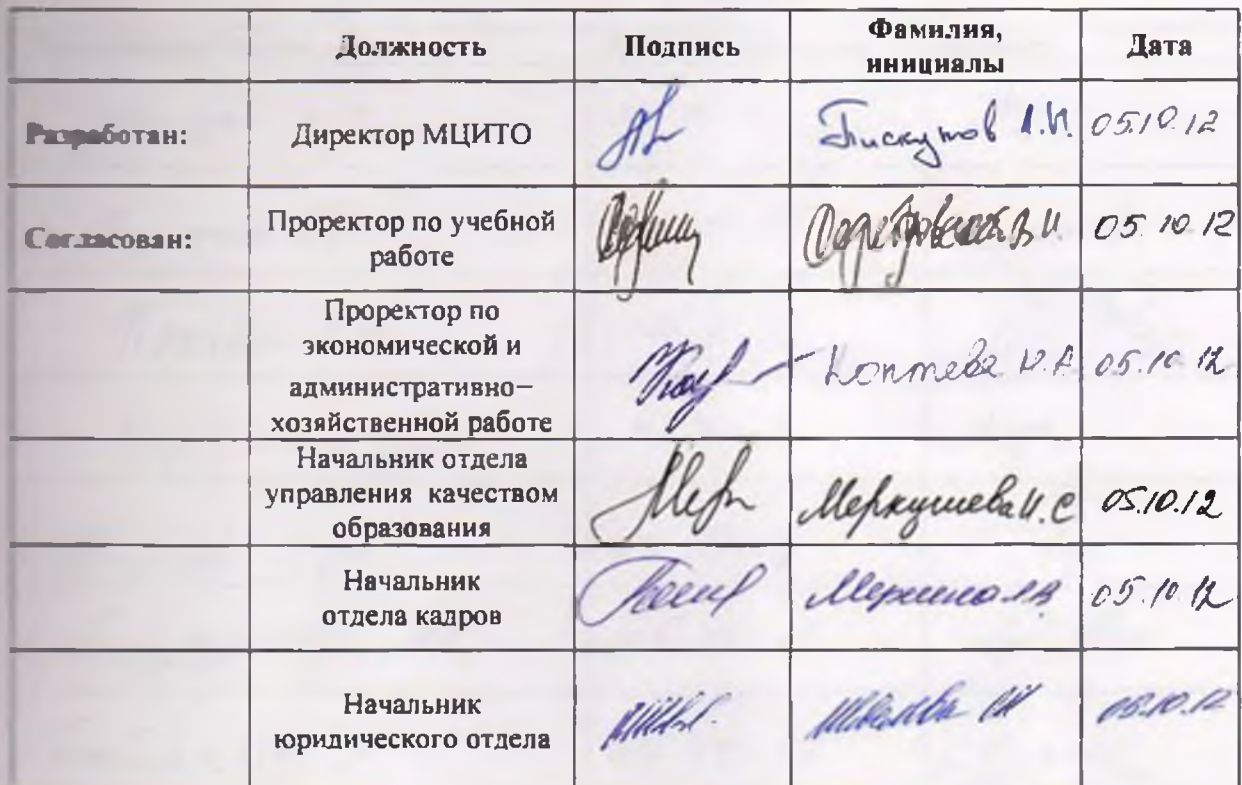 Должность Подпись Фамилия, инициалы Дата
Разработан: Директор МЦИТО Пискунов А.И. 05.10.12
Согласован: Проректор по учебной работе В.И. 05.10.12
Проректор по
экономической и
административно–
хозяйственной работе Коптева Н.А 05.10.12
Начальник отдела
управления качеством
образования Меркушева И.С 05.10.12
Начальник
отдела кадров 05.10.12
Начальник
юридического отдела 05.10.12